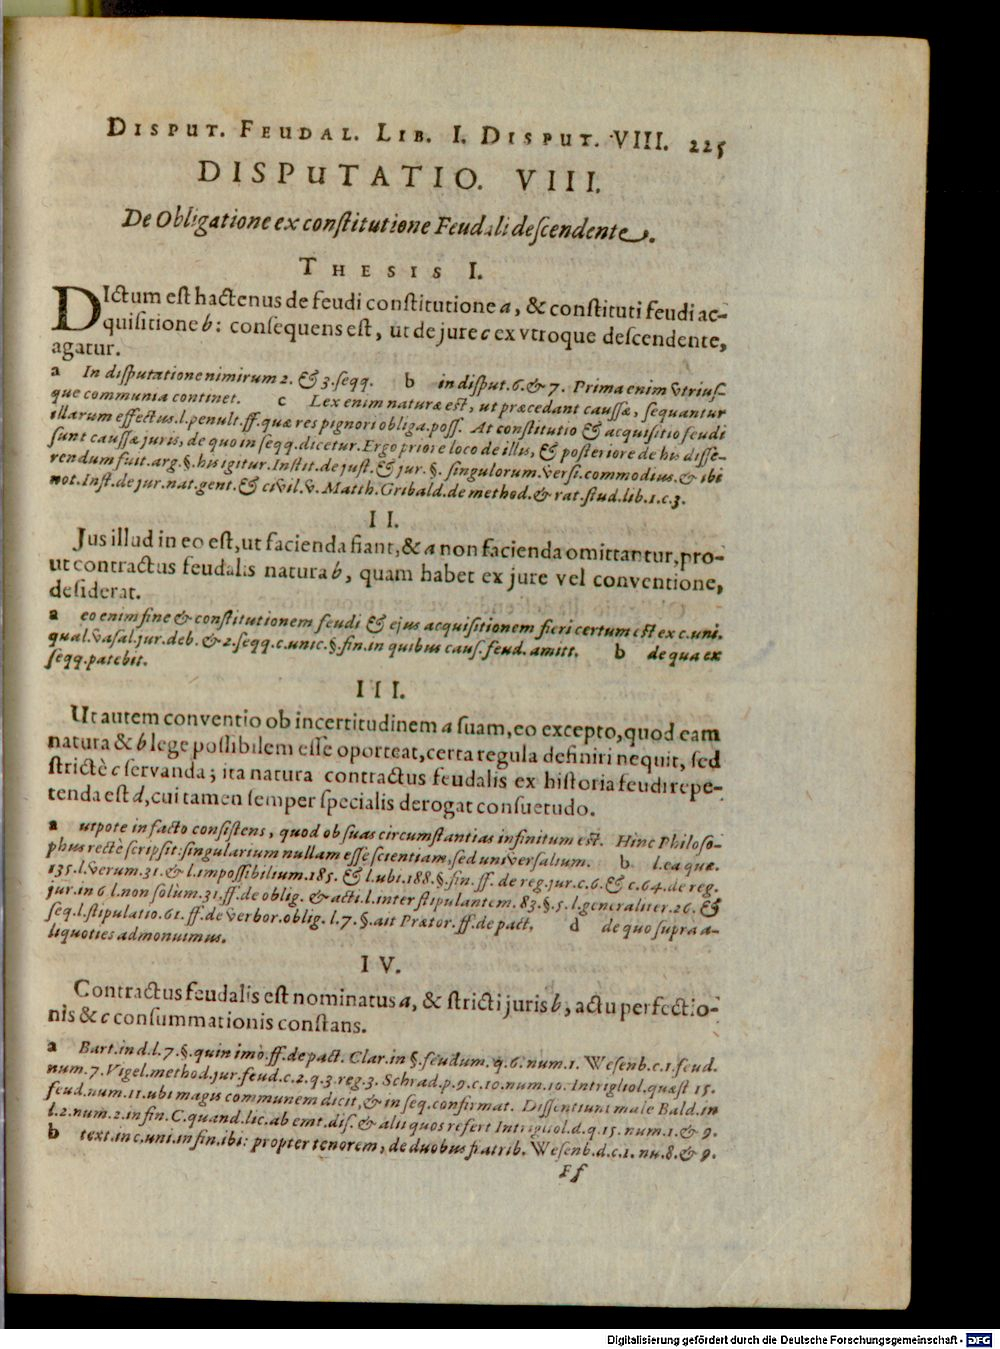 DISPUT. FEUDAL. LIB. I. DISPUT. VIII. 225
DISPUTATIO. VIII.
De Obligatione ex conſtitutione Feudali deſcendente.
THESIS I.
DIctum eſt hactenus de feudi conſtitutione a, & conſtituti feudi ac-
quiſitione b: conſequens eſt, ut de jure c ex vtroque deſcendente,
agatur.
a In diſputatione nimirum 2. & 3. ſeqq. b in diſput. 6. & 7. Prima enim vtriuſ-
que communia continet. c Lex enim naturæ eſt, ut præcedant cauſſæ, ſequantur
illarum effectus. l. penult. ff. quæ res pignori obliga. poſſ. At conſtitutio & acquiſitio feudi
ſunt cauſſæ juris, de quo in ſeqq. dicetur. Ergo priore loco de illis, & poſteriore de his diſſe-
rendum fuit. arg. §. his igitur. Inſtit. de juſt. & jur. §. ſingulorum. verſi. commodius. & ibi
not. Inſt. de jur. nat. gent. & civil. v. Matth. Gribald. de method. & rat. ſtud. lib. 1. c. 3.
II.
Jus illud in eo eſt, ut facienda fiant, & a non facienda omittantur, pro-
ut contractus feudalis natura b, quam habet ex jure vel conventione,
deſiderat.
a eo enim fine & conſtitutionem feudi & ejus acquiſitionem fieri certum eſt ex c. uni.
qual. vaſal. jur. deb. & 2. ſeqq. c. unic. §. fin. in quibus cauſ. feud. amitt. b de qua ex
ſeqq. patebit.
III.
Ut autem conventio ob incertitudinem a ſuam, eo excepto, quod eam
natura & b lege poſſibilem eſſe oporteat, certa regula definiri nequit, ſed
ſtrictè c ſervanda; ita natura contractus feudalis ex hiſtoria feudi repe-
tenda eſt d, cui tamen ſemper ſpecialis derogat conſuetudo.
a utpote in facto conſiſtens, quod ob ſuas circumſtantias infinitum eſt. Hinc Philoſo-
phus rectè ſcripſit: ſingularium nullam eſſe ſcientiam, ſed univerſalium. b l. ea quæ.
135. l. verum. 31. & l. impoſſibilium. 185. & l. ubi. 188. §. fin. ff. de reg. jur. c. 6. & c. 64. de reg.
jur. in 6 l. non ſolum. 31. ff. de oblig. & acti. l. inter ſtipulantem. 83. §. 5. l. generaliter. 26. &
ſeq. l. ſtipulatio. 61. ff. de verbor. oblig. l. 7. §. ait Prætor. ff. de pact. d de quo ſupra a-
liquoties admonuimus.
IV.
Contractus feudalis eſt nominatus a, & ſtricti juris b, actu perfectio-
nis & c conſummationis conſtans.
a Bart. in d. l. 7. §. quin imò. ff. de pact. Clar. in §. feudum. q. 6. num. 1. Weſenb. c. 1. feud.
num. 7. Vigel. method. jur. feud. c. 2. q. 3. reg. 3. Schrad. p. 9. c. 10. num. 10. Intrigliol. quæſt 15.
feud. num. 11. ubi magis communem dicit, & in ſeq. confirmat. Diſſentiunt male Bald. in
l. 2. num. 2. in fin. C. quand. lic. ab emt. diſ. & alii quos refert Intrigliol. d. q. 15. num. 1. & 9.
b text. in c. uni. in fin. ibi: propter tenorem, de duobus fratrib. Weſenb. d. c. 1. nu. 8. & 9.
Ff
Digitalisierung gefördert durch die Deutsche Forschungsgemeinschaft - DFG